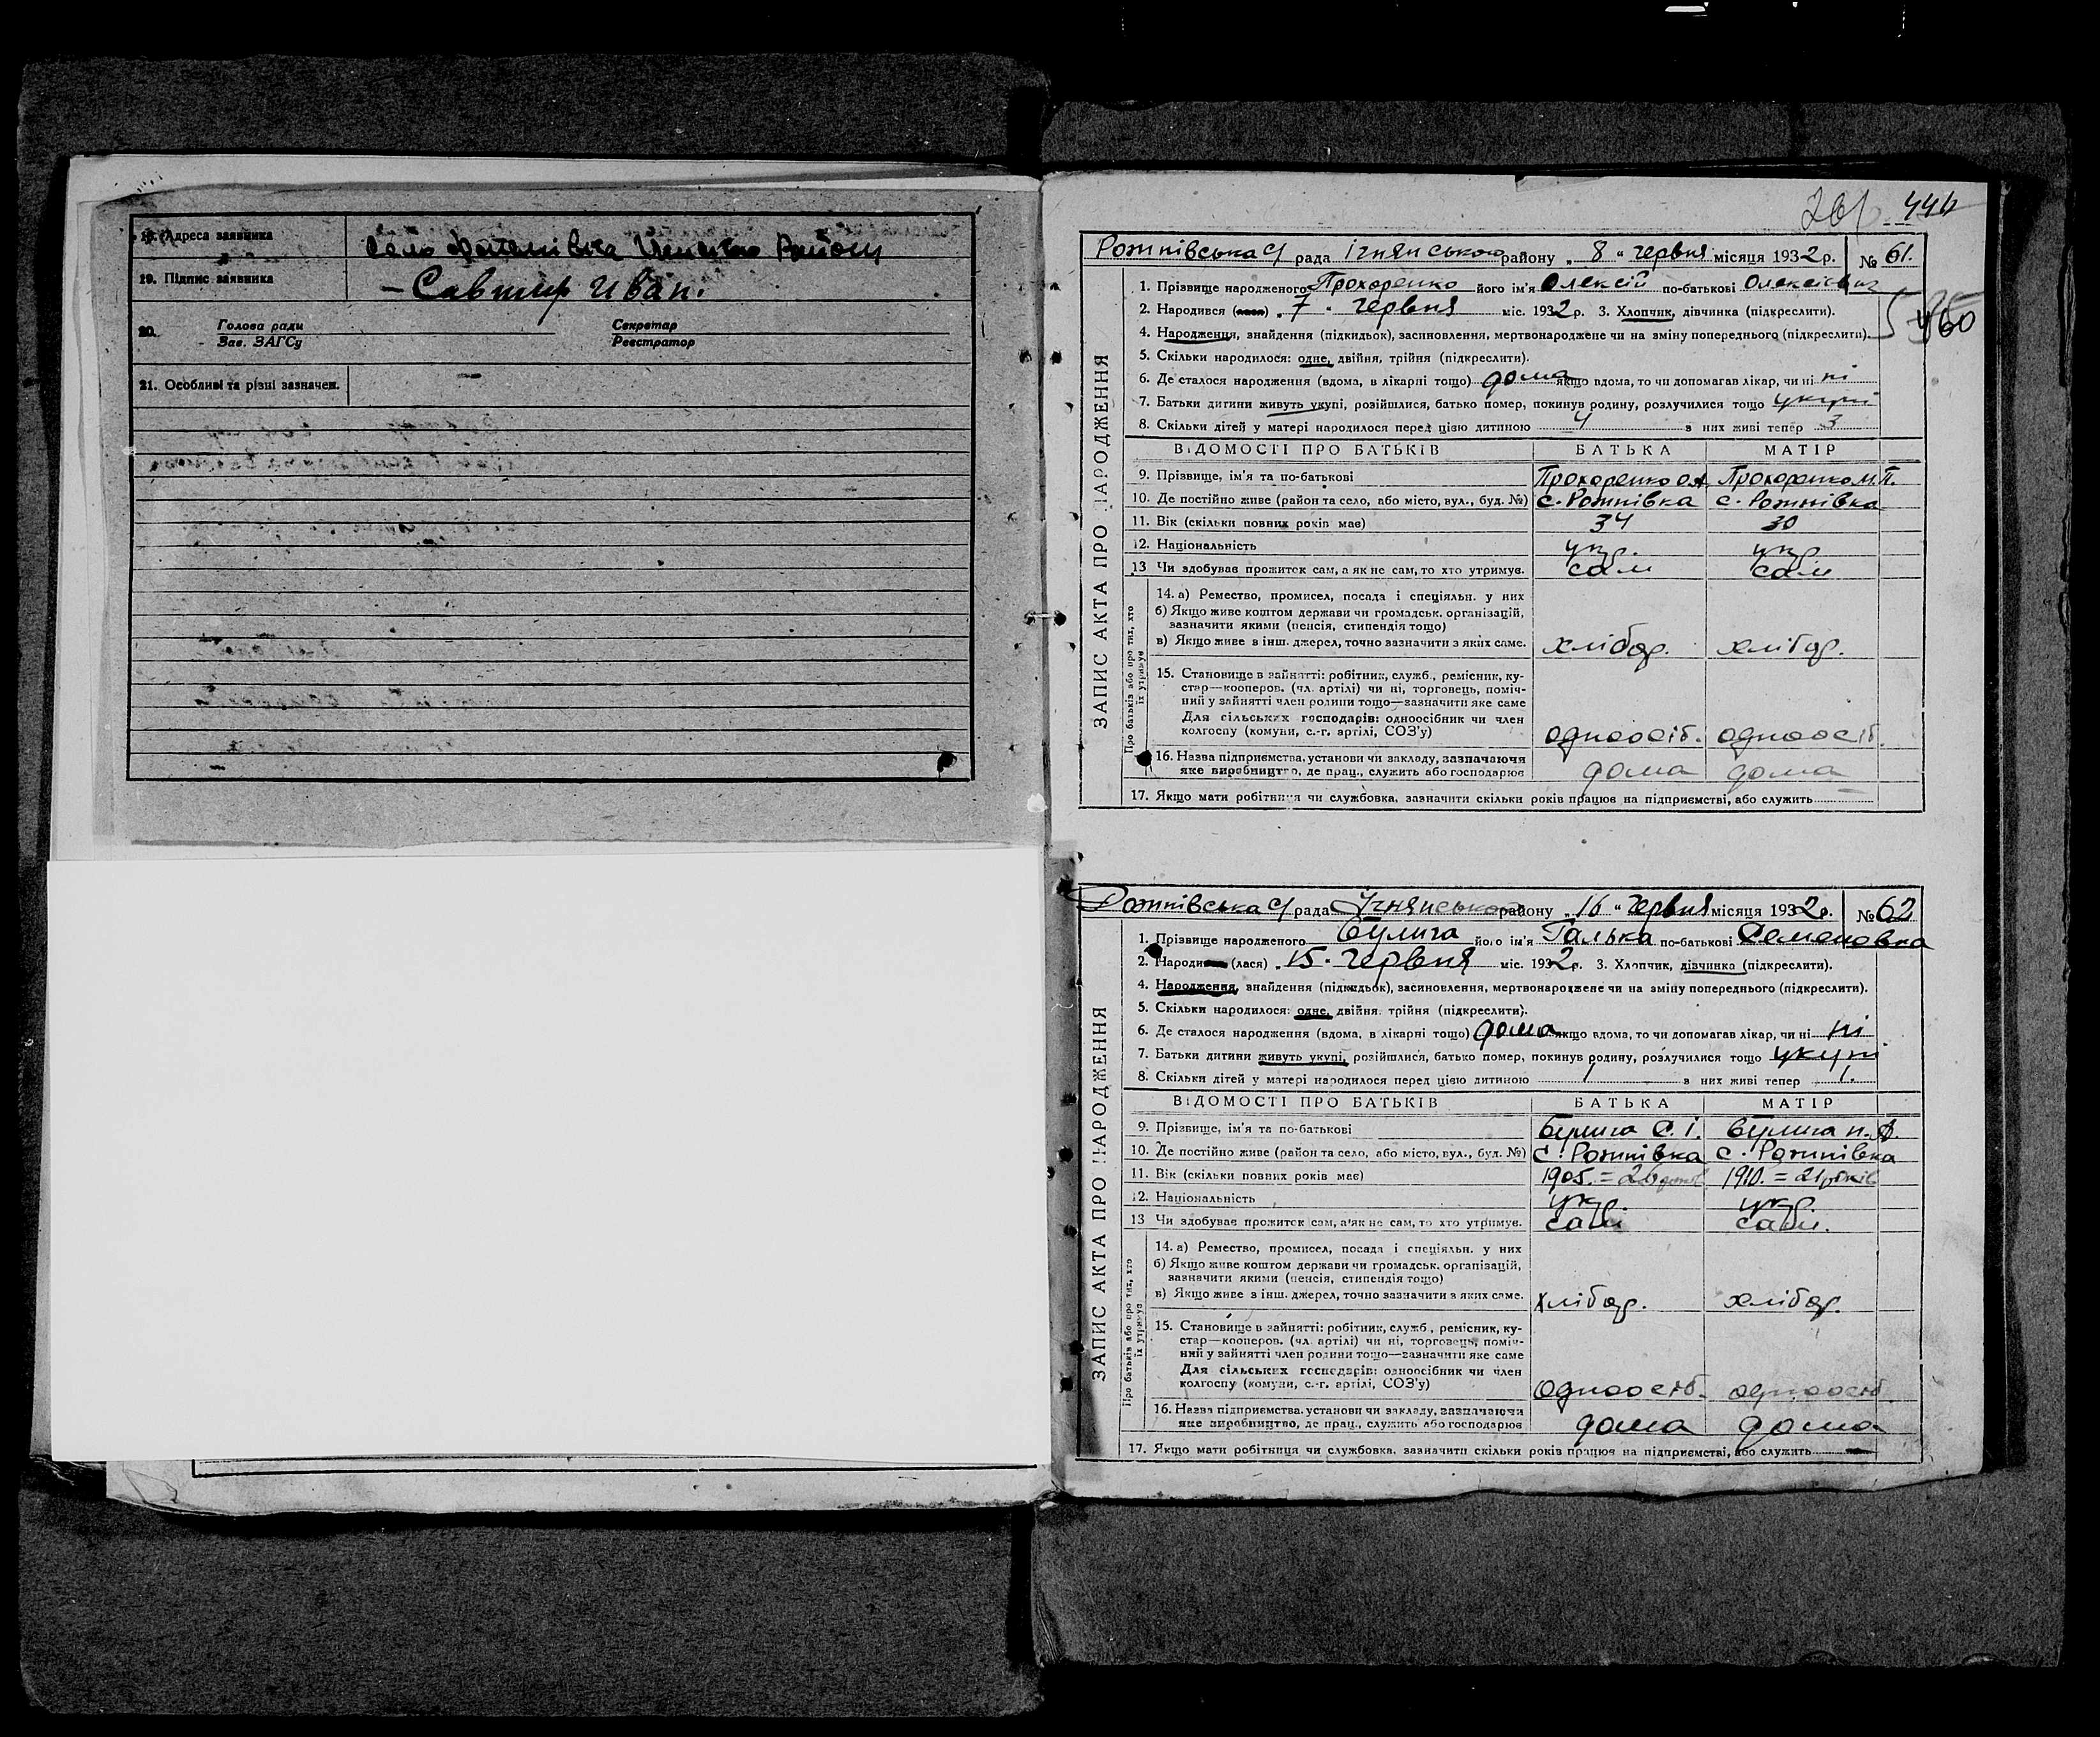 18. Адреса заявника Село
19. Підпис заявника – Савтир Иван.
20. Голова ради Секретар
Зав. ЗАГСу Реєстратор
21. Особливі та різні зазначен. —
261 446
Рожнівська с/ рада Ічнянського району „ 8 " червня місяця 1932 р. № 61.
1. Прізвище народженого Прохоренко його ім'я Олексій по-батькові Олексієвич
2. Народився „ 7 " червня міс. 1932 р. 3. Хлопчик, дівчинка (підкреслити).
460
4. Народження, знайдення (підкидьок), засиновлення, мертвонароджене чи на зміну попереднього (підкреслити).
5. Скільки народилося: одне, двійня, трійня (підкреслити).
6. Де сталося народження (вдома, в лікарні тощо) дома якщо вдома, то чи допомагав лікар, чи ні ні
7. Батьки дитини живуть укупі, розійшлися, батько помер, покинув родину, розлучилися тощо укупі
8. Скільки дітей у матері народилося перед цією дитиною 4 з них живі тепер 3
ВІДОМОСТІ ПРО БАТЬКІВ БАТЬКА МАТІР
9. Прізвище, ім'я та по-батькові Прохоренко О.А Прохоренко М.П.
10. Де постійно живе (район та село, або місто, вул., буд. №) с. Рожнівка с. Рожнівка
11. Вік (скільки повних років має) 34 30
12. Національність укр. укр.
13 Чи здобуває прожиток сам, а як не сам, то хто утримує. сам сам
14. а) Ремество, промисел, посада і спеціяльн. у них
б) Якщо живе коштом держави чи громадськ. організацій,
зазначити якими (пенсія, стипендія тощо)
в) Якщо живе з інш. джерел, точно зазначити з яких саме. хлібор. хлібор.
15. Становище в зайнятті: робітник, служб., ремісник, ку-
стар—кооперов. (чл. артілі) чи ні, торговець, поміч-
ний у зайнятті член родини тощо—зазначити яке саме
Для сільських господарів: одноосібник чи член
колгоспу (комуни, с.-г. артілі, СОЗ'у) одноосіб. одноосіб.
16. Назва підприємства, установи чи закладу, зазначаючи
яке виробництво, де прац., служить або господарює дома дома
17. Якщо мати робітниця чи службовка, зазначити скільки років працює на підприємстві, або служить
ЗАПИС АКТА ПРО НАРОДЖЕННЯ
Про батьків або про тих, хто
їх утримує
Рожнівська с/ рада Ічнянського району „ 16 " червня місяця 1932 р. № 62
1. Прізвище народженого Булига його ім'я Галька по-батькові Семеновна
2. Народи (лася) „ 15 " червня міс. 1932 р. 3. Хлопчик, дівчинка (підкреслити).
4. Народження, знайдення (підкидьок), засиновлення, мертвонароджене чи на зміну попереднього (підкреслити).
5. Скільки народилося: одне, двійня, трійня (підкреслити).
6. Де сталося народження (вдома, в лікарні тощо) дома якщо вдома, то чи допомагав лікар, чи ні ні
7. Батьки дитини живуть укупі, розійшлися, батько помер, покинув родину, розлучилися тощо укупі
8. Скільки дітей у матері народилося перед цією дитиною 1 з них живі тепер 1.
ВІДОМОСТІ ПРО БАТЬКІВ БАТЬКА МАТІР
9. Прізвище, ім'я та по-батькові Булига С. І. Булига Н. А.
10. Де постійно живе (район та село, або місто, вул., буд. №) с. Рожнівка с. Рожнівка
11. Вік (скільки повних років має) 1905. = 26 років 1910. = 21 років
12. Національність укр. укр.
13 Чи здобуває прожиток сам, а як не сам, то хто утримує. сам сам.
14. а) Ремество, промисел, посада і спеціяльн. у них
б) Якщо живе коштом держави чи громадськ. організацій,
зазначити якими (пенсія, стипендія тощо)
в) Якщо живе з інш. джерел, точно зазначити з яких саме. хлібор. хлібор.
15. Становище в зайнятті: робітник, служб., ремісник, ку-
стар—кооперов. (чл. артілі) чи ні, торговець, поміч-
ний у зайнятті член родини тощо—зазначити яке саме
Для сільських господарів: одноосібник чи член
колгоспу (комуни, с.-г. артілі, СОЗ'у) одноосіб. одноосіб
16. Назва підприємства, установи чи закладу, зазначаючи
яке виробництво, де прац., служить або господарює дома дома
17. Якщо мати робітниця чи службовка, зазначити скільки років працює на підприємстві, або служить —
ЗАПИС АКТА ПРО НАРОДЖЕННЯ
Про батьків або про тих, хто
їх утримує